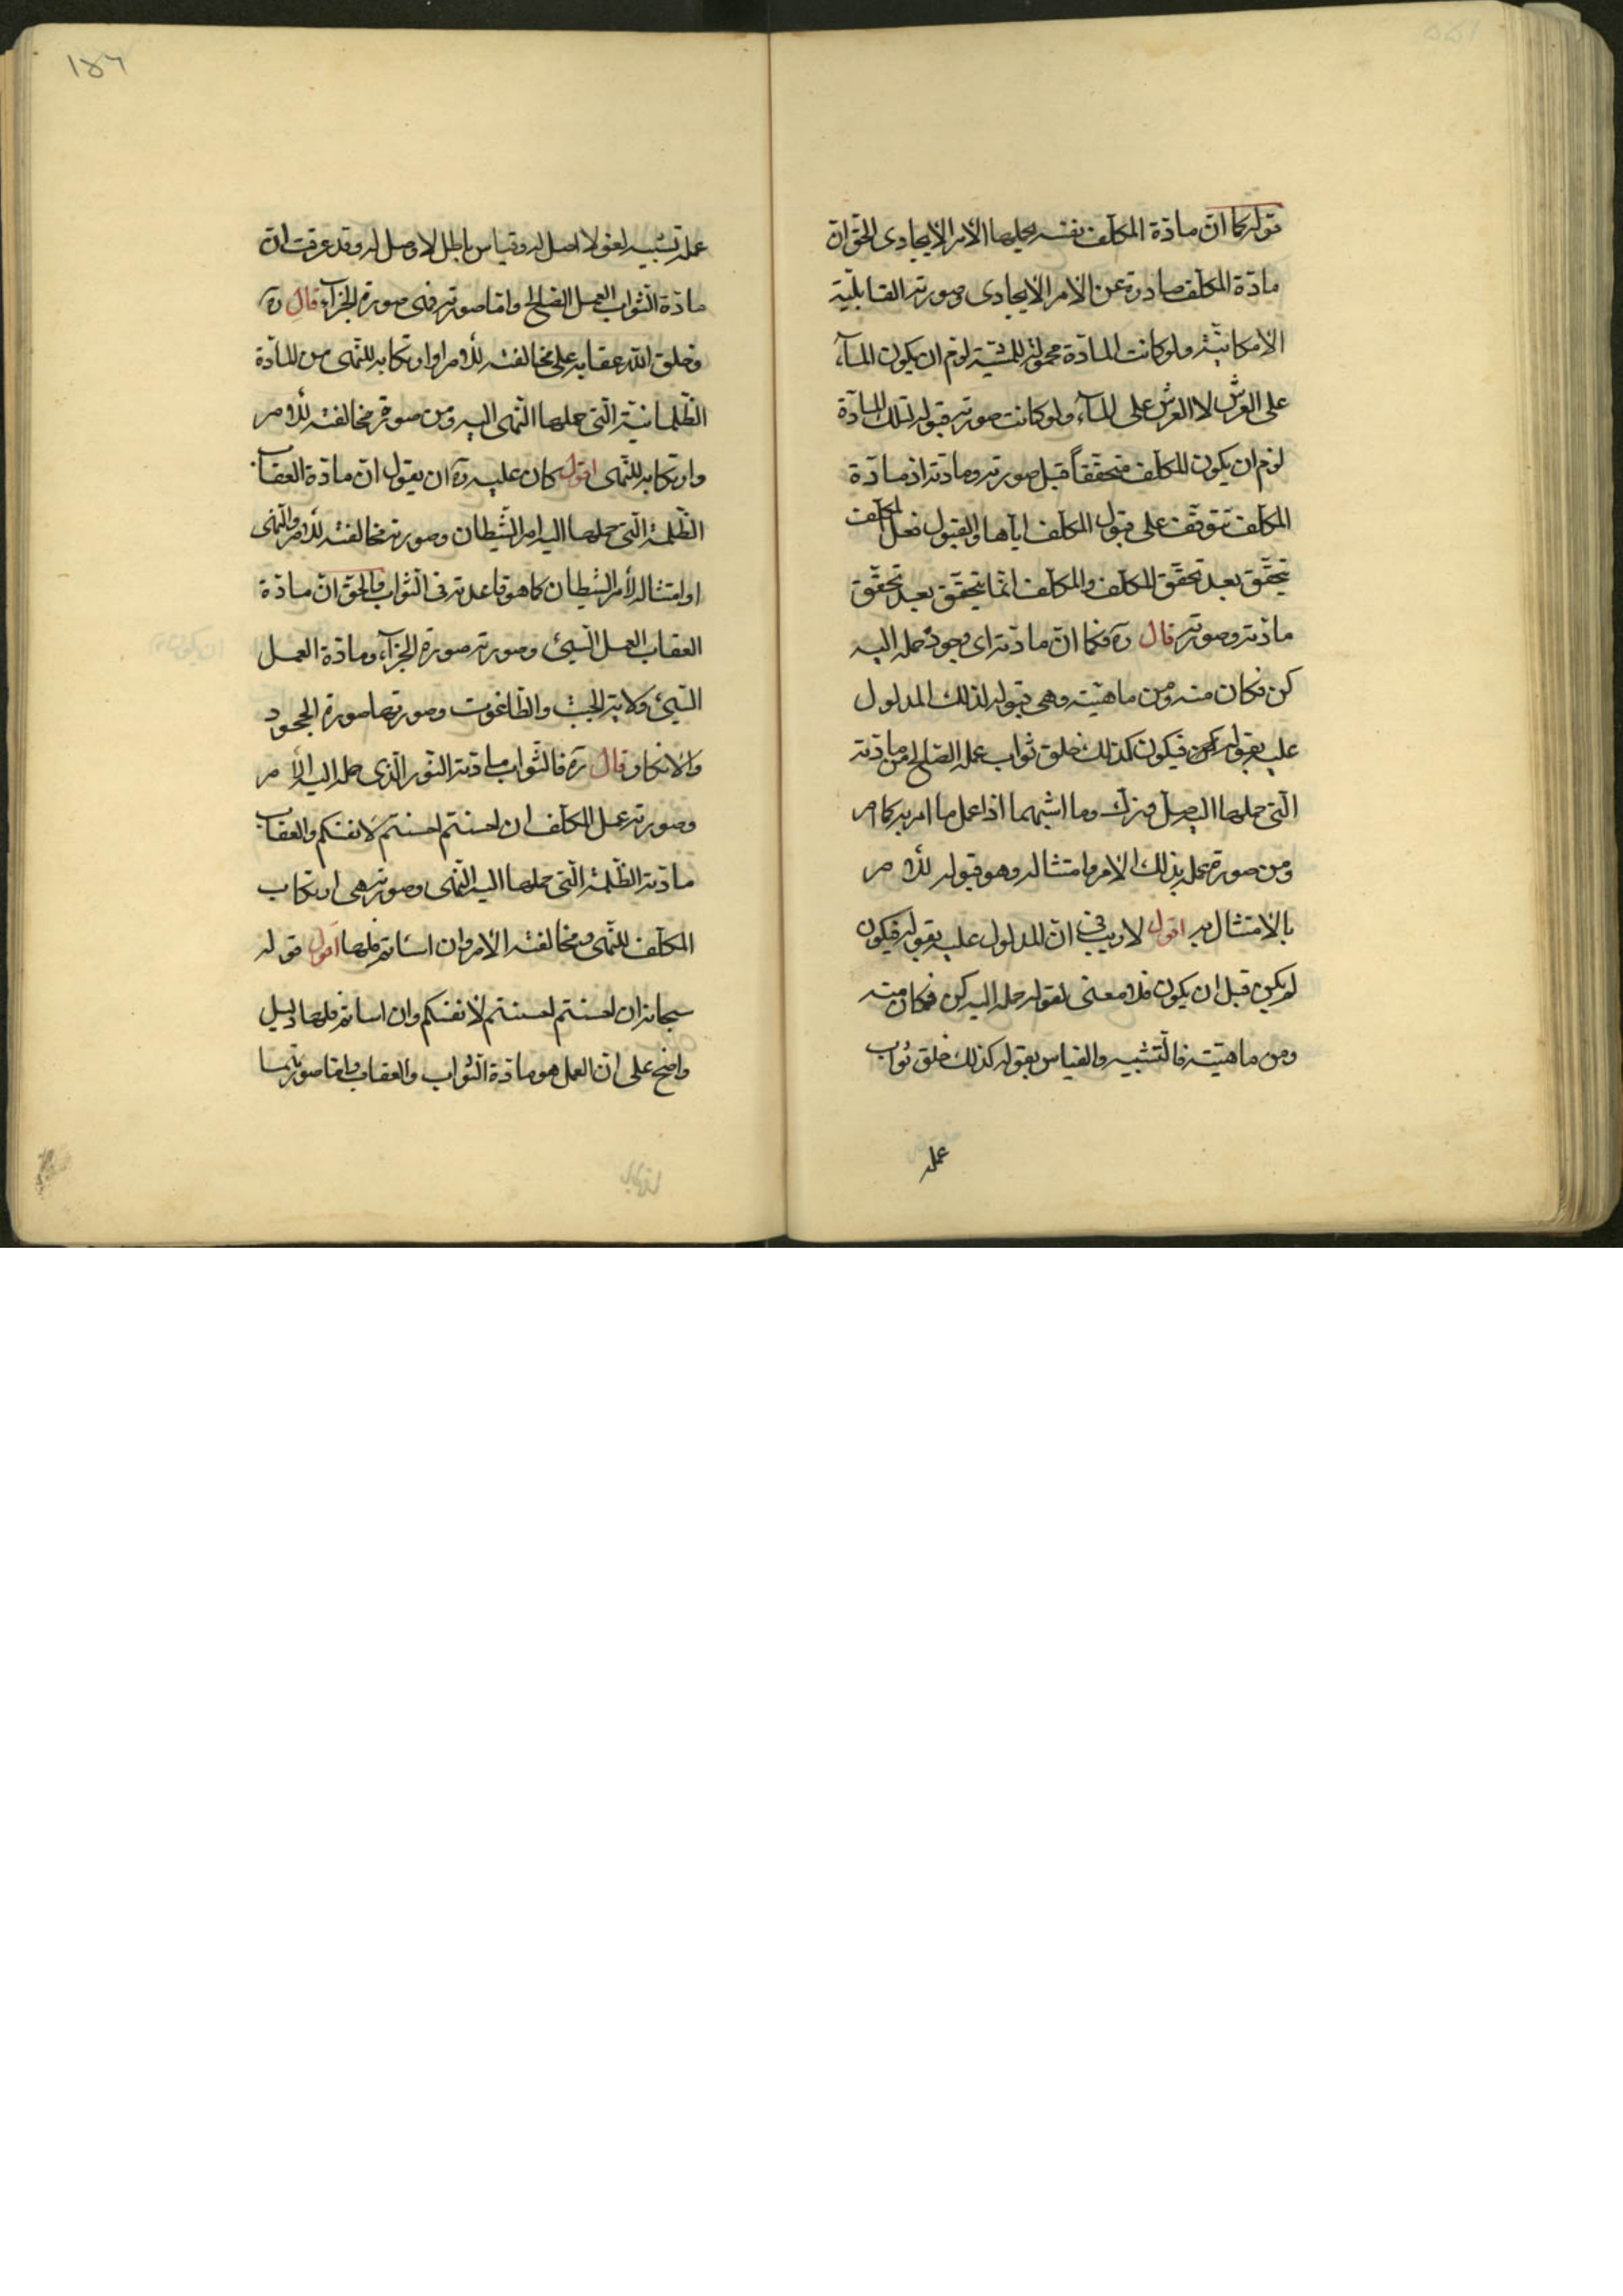 قوله كما انّ مادّة المكلّف نفسه يحملها الأمر الايجادى الحق ان
مادّة المكلف صادرة عن الأمر الايجادى وصورته القابليّة
الامكانيّة ولو كانت المادّة محمولة للمشيّة لزم ان يكون المآء
على العرش لا العرش على المآء ولو كانت صورته قبوله لتلك المادّة
لزم ان يكون المكلّف متحقّقاً قبل صورته ومادّته اذ مادّة
المكلّف تتوقّف على قبول المكلّف ايّاها والقبول فعل المكلّف
يتحقّق بعد تحقّق المكلّف والمكلّف انّما يتحقّق بعد تحقّق
مادّته وصورته قال ره فكما انّ مادّته اى وجوده حمله اليه
كن فكان منه ومن ماهيّته وهى قبوله لذلك المدلول
عليه بقوله كن فيكون كذلك خلق ثواب عمله الصّالح من مادّته
الّتى حملها اليه صلّ وزكّ وما اشبههما اذا عمل ما امر به كما امر
ومن صورة عمله بذلك الامر وامتثاله وهو قبوله للأمر
بالامتثال به اقول لا ريب فى انّ المدلول عليه بقوله فيكون
لم يكن قبل ان يكون فلا معنى لقوله حمله اليه كن فكان منه
ومن ماهيّته فالتّشبيه والقياس بقوله كذلك خلق ثواب
عمله
١٥٦
عمله تشبيه لغو لا اصل له وقياس باطل لا وصل له وقد عرفت ان
مادّة الثّواب العمل الصّالح وامّا صورته فهى صورة الجزآء قال ره
وخلق اللّه عقابه على مخالفته للأمر او ارتكابه للنّهى من المادّة
الظّلمانيّة الّتى حملها النّهى اليه ومن صورة مخالفته للأمر
وارتكابه للنّهى اقول كان عليه ره ان يقول انّ مادّة العقاب
الظّلمة الّتى حملها اليه امر الشّيطان وصورته مخالفته للأمر والنّهى
او امتثاله لأمر الشيطان كما هو قاعدته فى الثّواب والحق انّ مادّة
العقاب العمل السّيئ وصورته صورة الجزآء ومادّة العمل
السّيئ ولاية الجبت والطّاغوت وصورتها صورة الجحود
والانكار قال ره فالثّواب مادّته النّور الّذى حمله اليه الأمر
وصورته عمل المكلّف ان احسنتم احسنتم لانفسكم والعقاب
مادّته الظّلمة الّتى حملها اليه النّهى وصورته هى ارتكاب
المكلّف للنّهى ومخالفته الأمر وان اسأتم فلها اقول قوله
سبحانه ان احسنتم احسنتم لانفسكم وان اسأتم فلها دليل
واضح على انّ العمل هو مادّة الثّواب والعقاب وامّا صورتهما